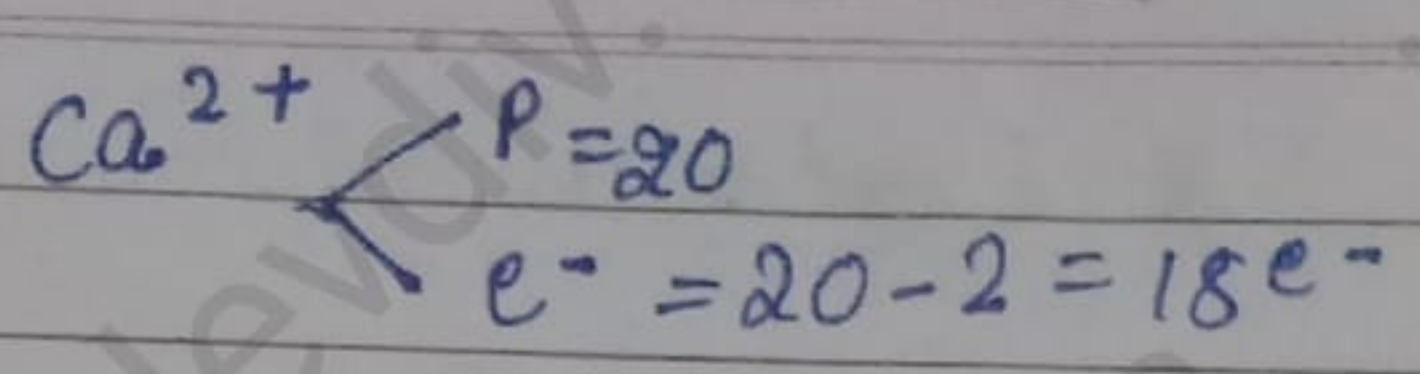 Ca²⁺ P = 20
e⁻ = 20 - 2 = 18e⁻